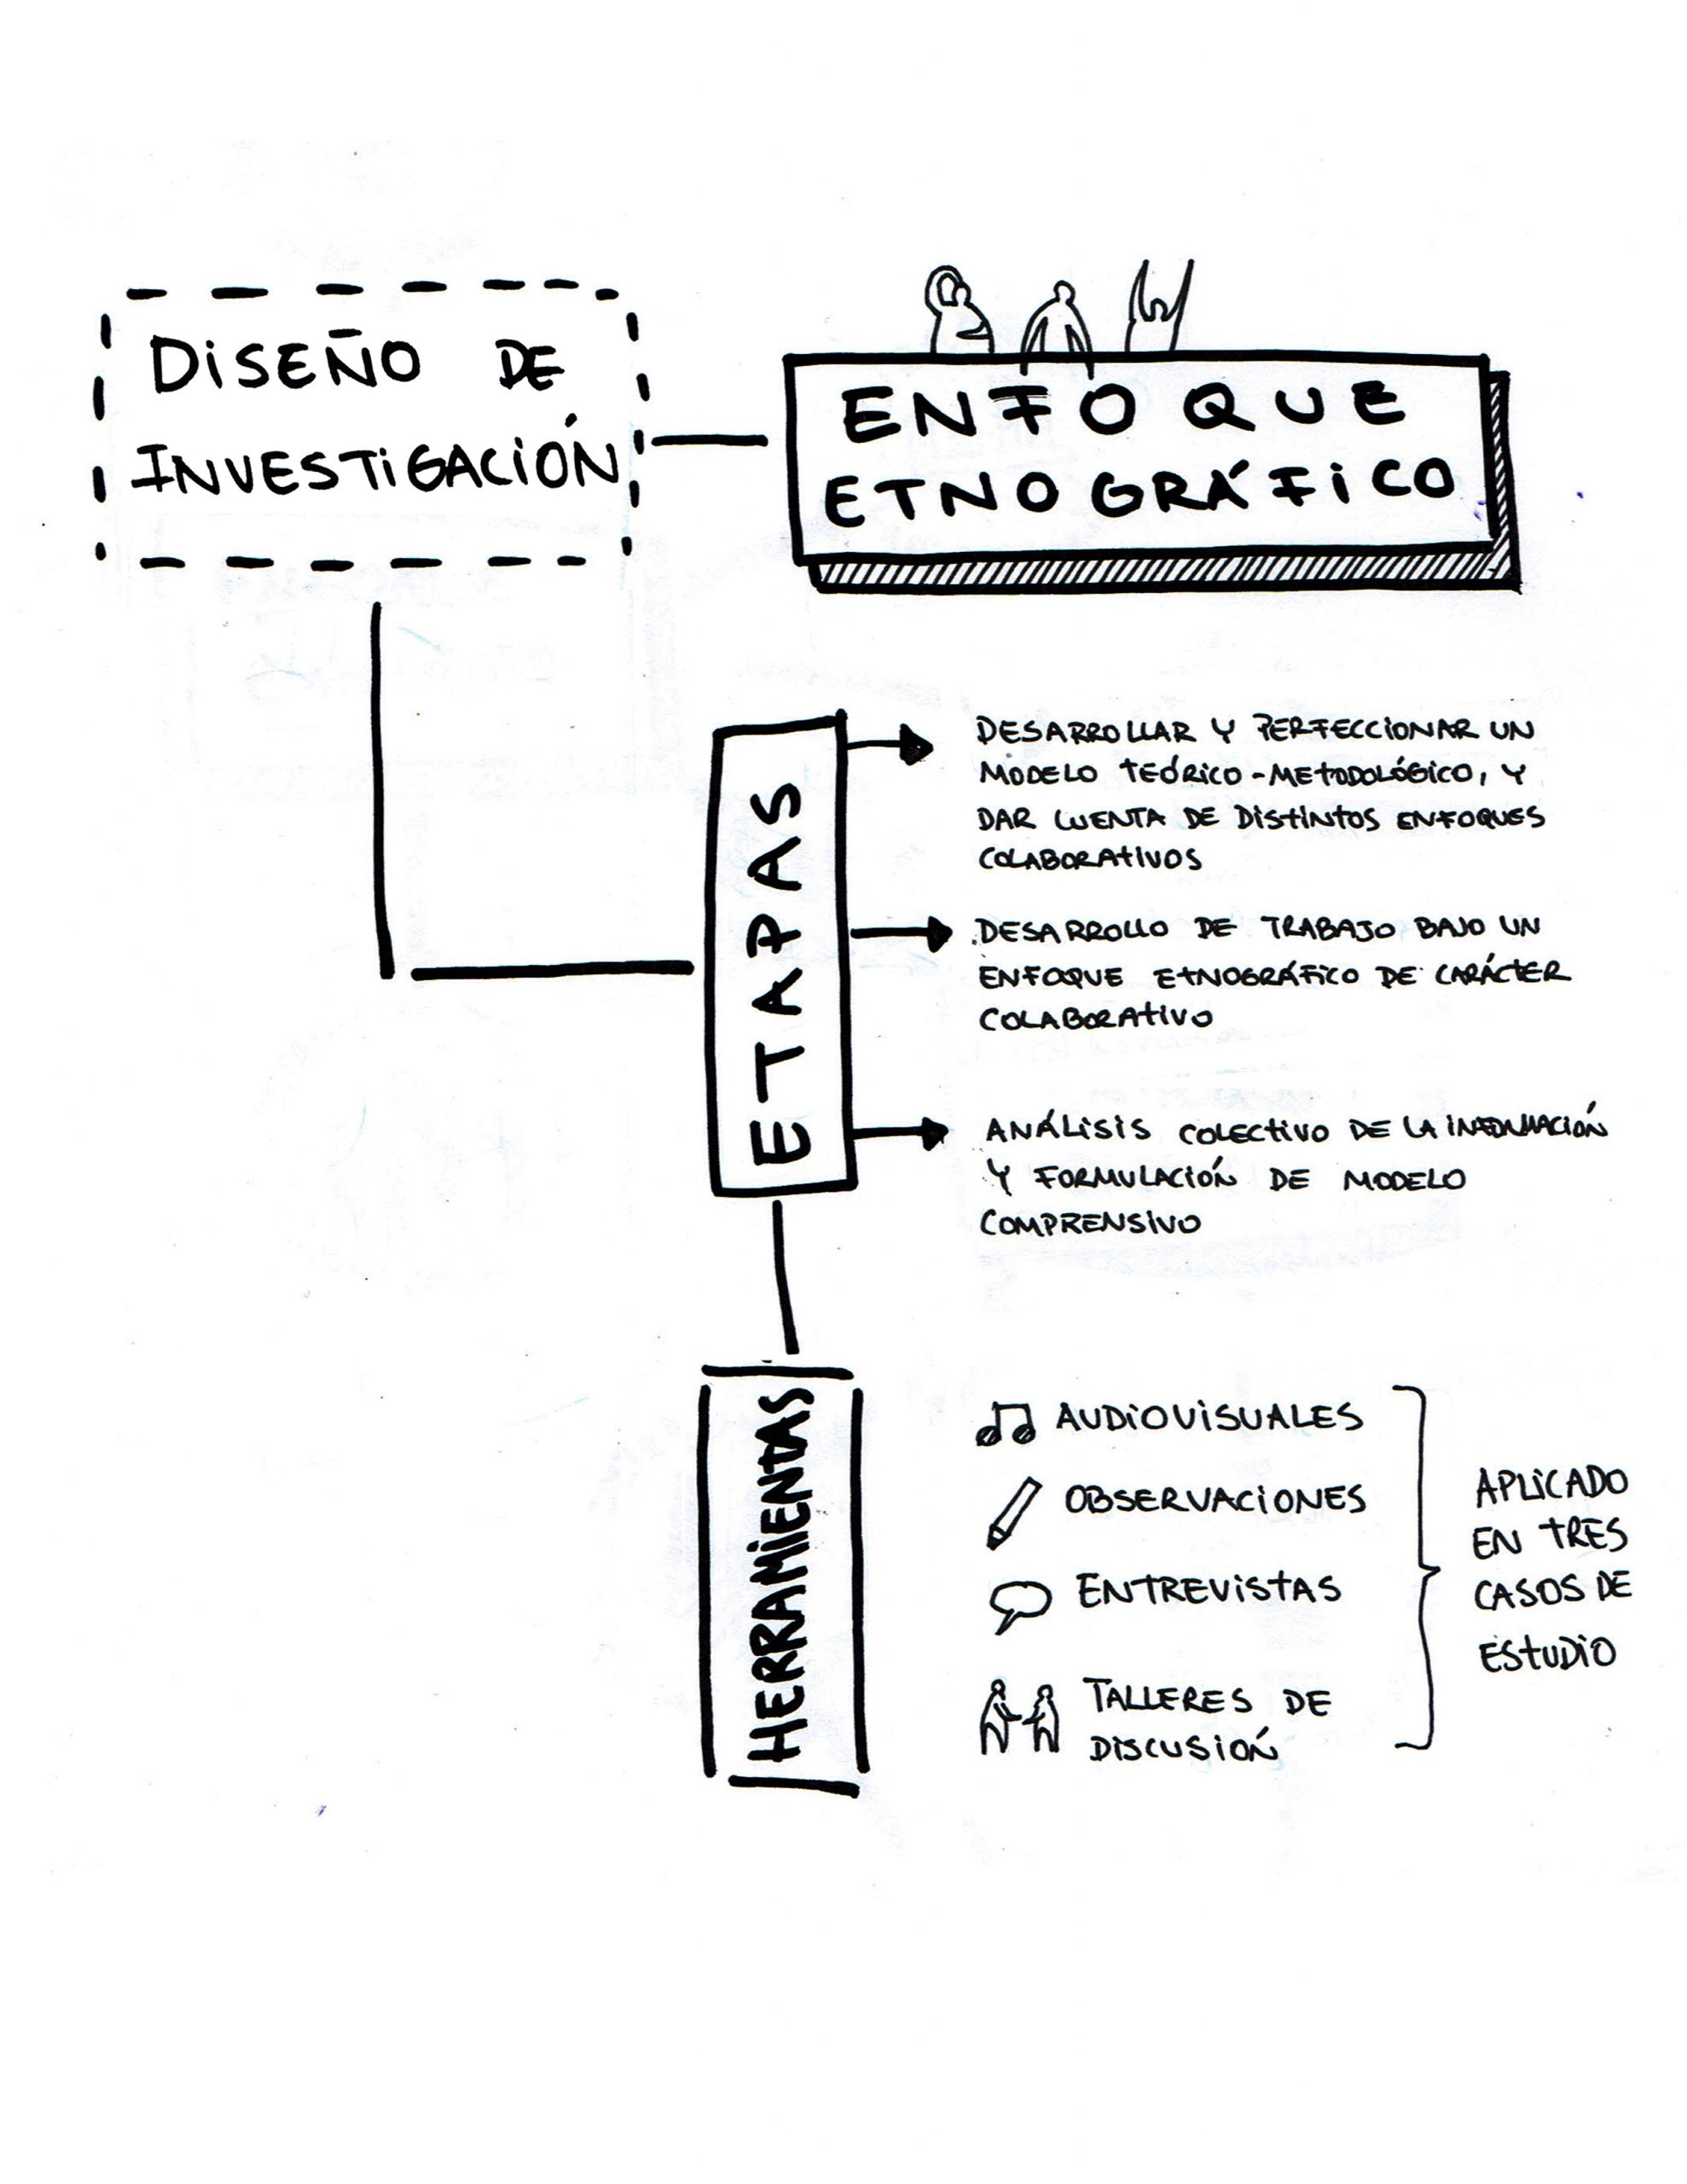 DISEÑO DE
INVESTIGACIÓN
ENFOQUE
ETNOGRÁFICO
ETAPAS
DESARROLLAR Y PERFECCIONAR UN
MODELO TEÓRICO-METODOLÓGICO, Y
DAR CUENTA DE DISTINTOS ENFOQUES
COLABORATIVOS
DESARROLLO DE TRABAJO BAJO UN
ENFOQUE ETNOGRÁFICO DE CARÁCTER
COLABORATIVO
ANÁLISIS COLECTIVO DE LA INFORMACIÓN
Y FORMULACIÓN DE MODELO
COMPRENSIVO
HERRAMIENTAS
AUDIOVISUALES
OBSERVACIONES
ENTREVISTAS
TALLERES DE
DISCUSIÓN
APLICADO
EN TRES
CASOS DE
ESTUDIO